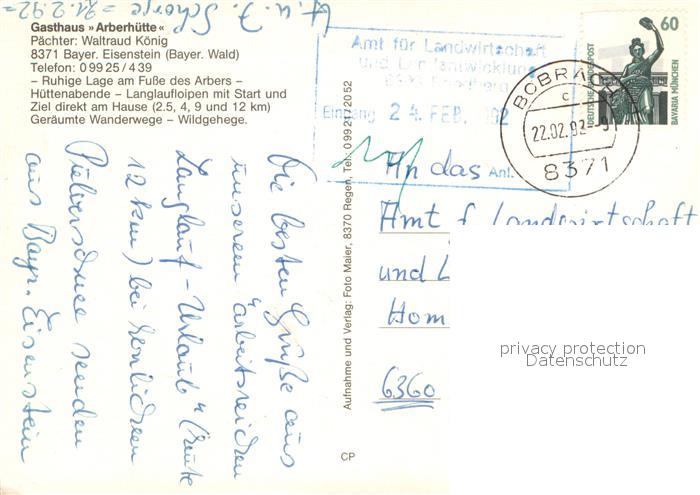 Gasthaus »Arberhütte«
Pächter: Waltraud König
8371 Bayer. Eisenstein (Bayer. Wald)
Telefon: 0 99 25 / 4 39
– Ruhige Lage am Fuße des Arbers –
Hüttenabende – Langlaufloipen mit Start und
Ziel direkt am Hause (2.5, 4, 9 und 12 km)
Geräumte Wanderwege – Wildgehege.
Die besten Grüße aus
unserem "arbeitsreichen
Langlauf-Urlaub" (heute
12 km) bei herrlichem
Pulverschnee senden
aus Bayr. Eisenstein
=21.2.92=
Aufnahme und Verlag: Foto Maier, 8370 Regen, Tel. 0 99 21/2 20 52
CP
Amt für Landwirtschaft
und Landentwicklung
Eingang 24. FEB.
Anl.
60
DEUTSCHE BUNDESPOST
BAVARIA MÜNCHEN
BOBRACH
c
22.02.92
8371
An das
Amt f. Landwirtschaft
und L
Hom
6360
privacy protection
Datenschutz